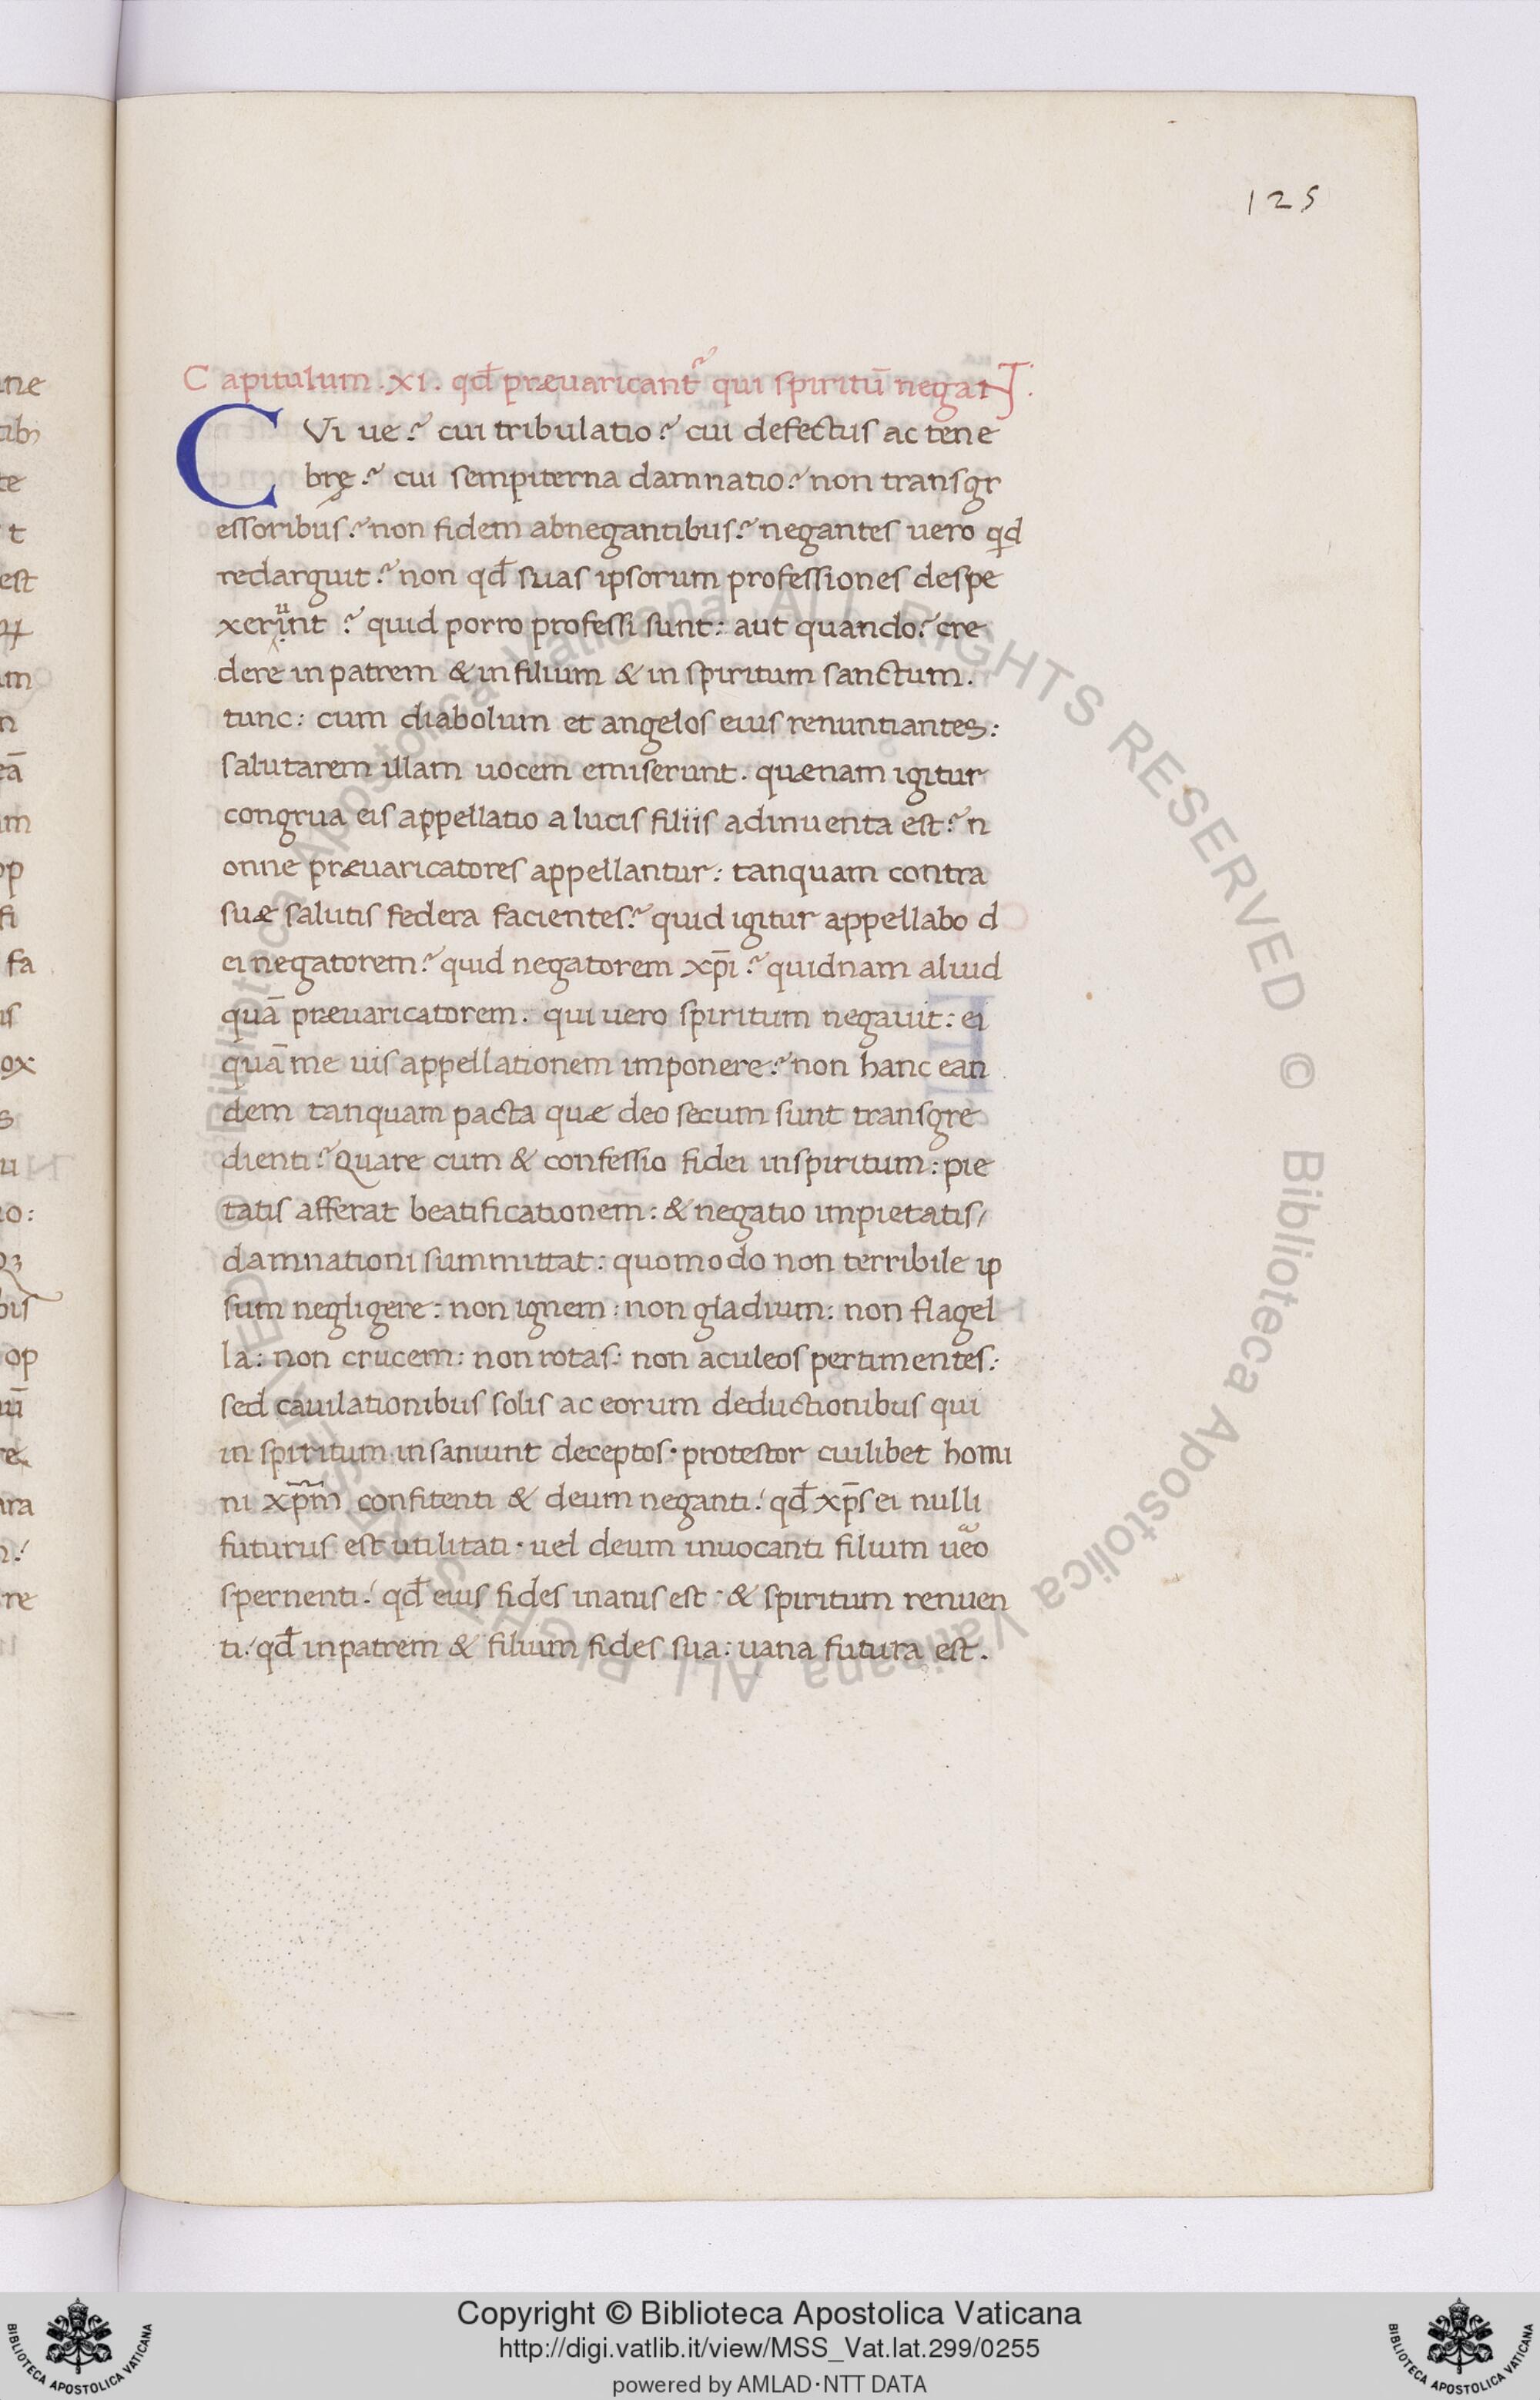 125
Capitulum .xi. qđ præuaricant᷑ qui spiritū negaNT.
CVi ue? cui tribulatio? cui defectus ac tene
brę? cui sempiterna damnatio? non transgr
essoribus? non fidem abnegantibus? negantes uero qd
redarguit? non qđ suas ipsorum professiones despe
xeriunt? quid porro professi sunt: aut quando? cre
dere in patrem & in filium & in spiritum sanctum.
tunc: cum diabolum et angelos eius renuntiantes:
salutarem illam uocem emiserunt. quænam igitur
congrua eis appellatio a lucis filiis adinuenta est? n
onne præuaricatores appellantur: tanquam contra
suæ salutis federa facientes? quid igitur appellabo d
ei negatorem? quid negatorem xp̄i? quidnam aliud
quā præuaricatorem. qui uero spiritum negauit: ei
quā me uis appellationem imponere? non hanc ean
dem tanquam pacta quæ deo secum sunt transgre
dienti? Quare cum & confessio fidei in spiritum: pie
tatis afferat beatificationem: & negatio impietatis/
damnationi summittat: quomodo non terribile ip
sum negligere: non ignem: non gladium: non flagel
la: non crucem: non rotas: non aculeos pertimentes:
sed cauilationibus solis ac eorum deductionibus qui
in spiritum insaniunt deceptos. protestor cuilibet homi
ni xp̄m confitenti & deum neganti! qđ xp̄s ei nulli
futurus est utilitati. uel deum inuocanti filium ueo
spernenti! qđ eius fides inanis est: & spiritum renuen
ti! qđ in patrem & filium fides sua: uana futura est.
ne
tib
te
t
est
m
n
eā
m
op
fi
fa
is
ox
s
u
io:
bis
op
ū
re
ara
re
© Biblioteca Apostolica Vaticana ALL RIGHTS RESERVED © Biblioteca Apostolica Vaticana ALL RIGHTS RESERVED
Copyright © Biblioteca Apostolica Vaticana
http://digi.vatlib.it/view/MSS_Vat.lat.299/0255
powered by AMLAD·NTT DATA
BIBLIOTECA APOSTOLICA VATICANA
BIBLIOTECA APOSTOLICA VATICANA